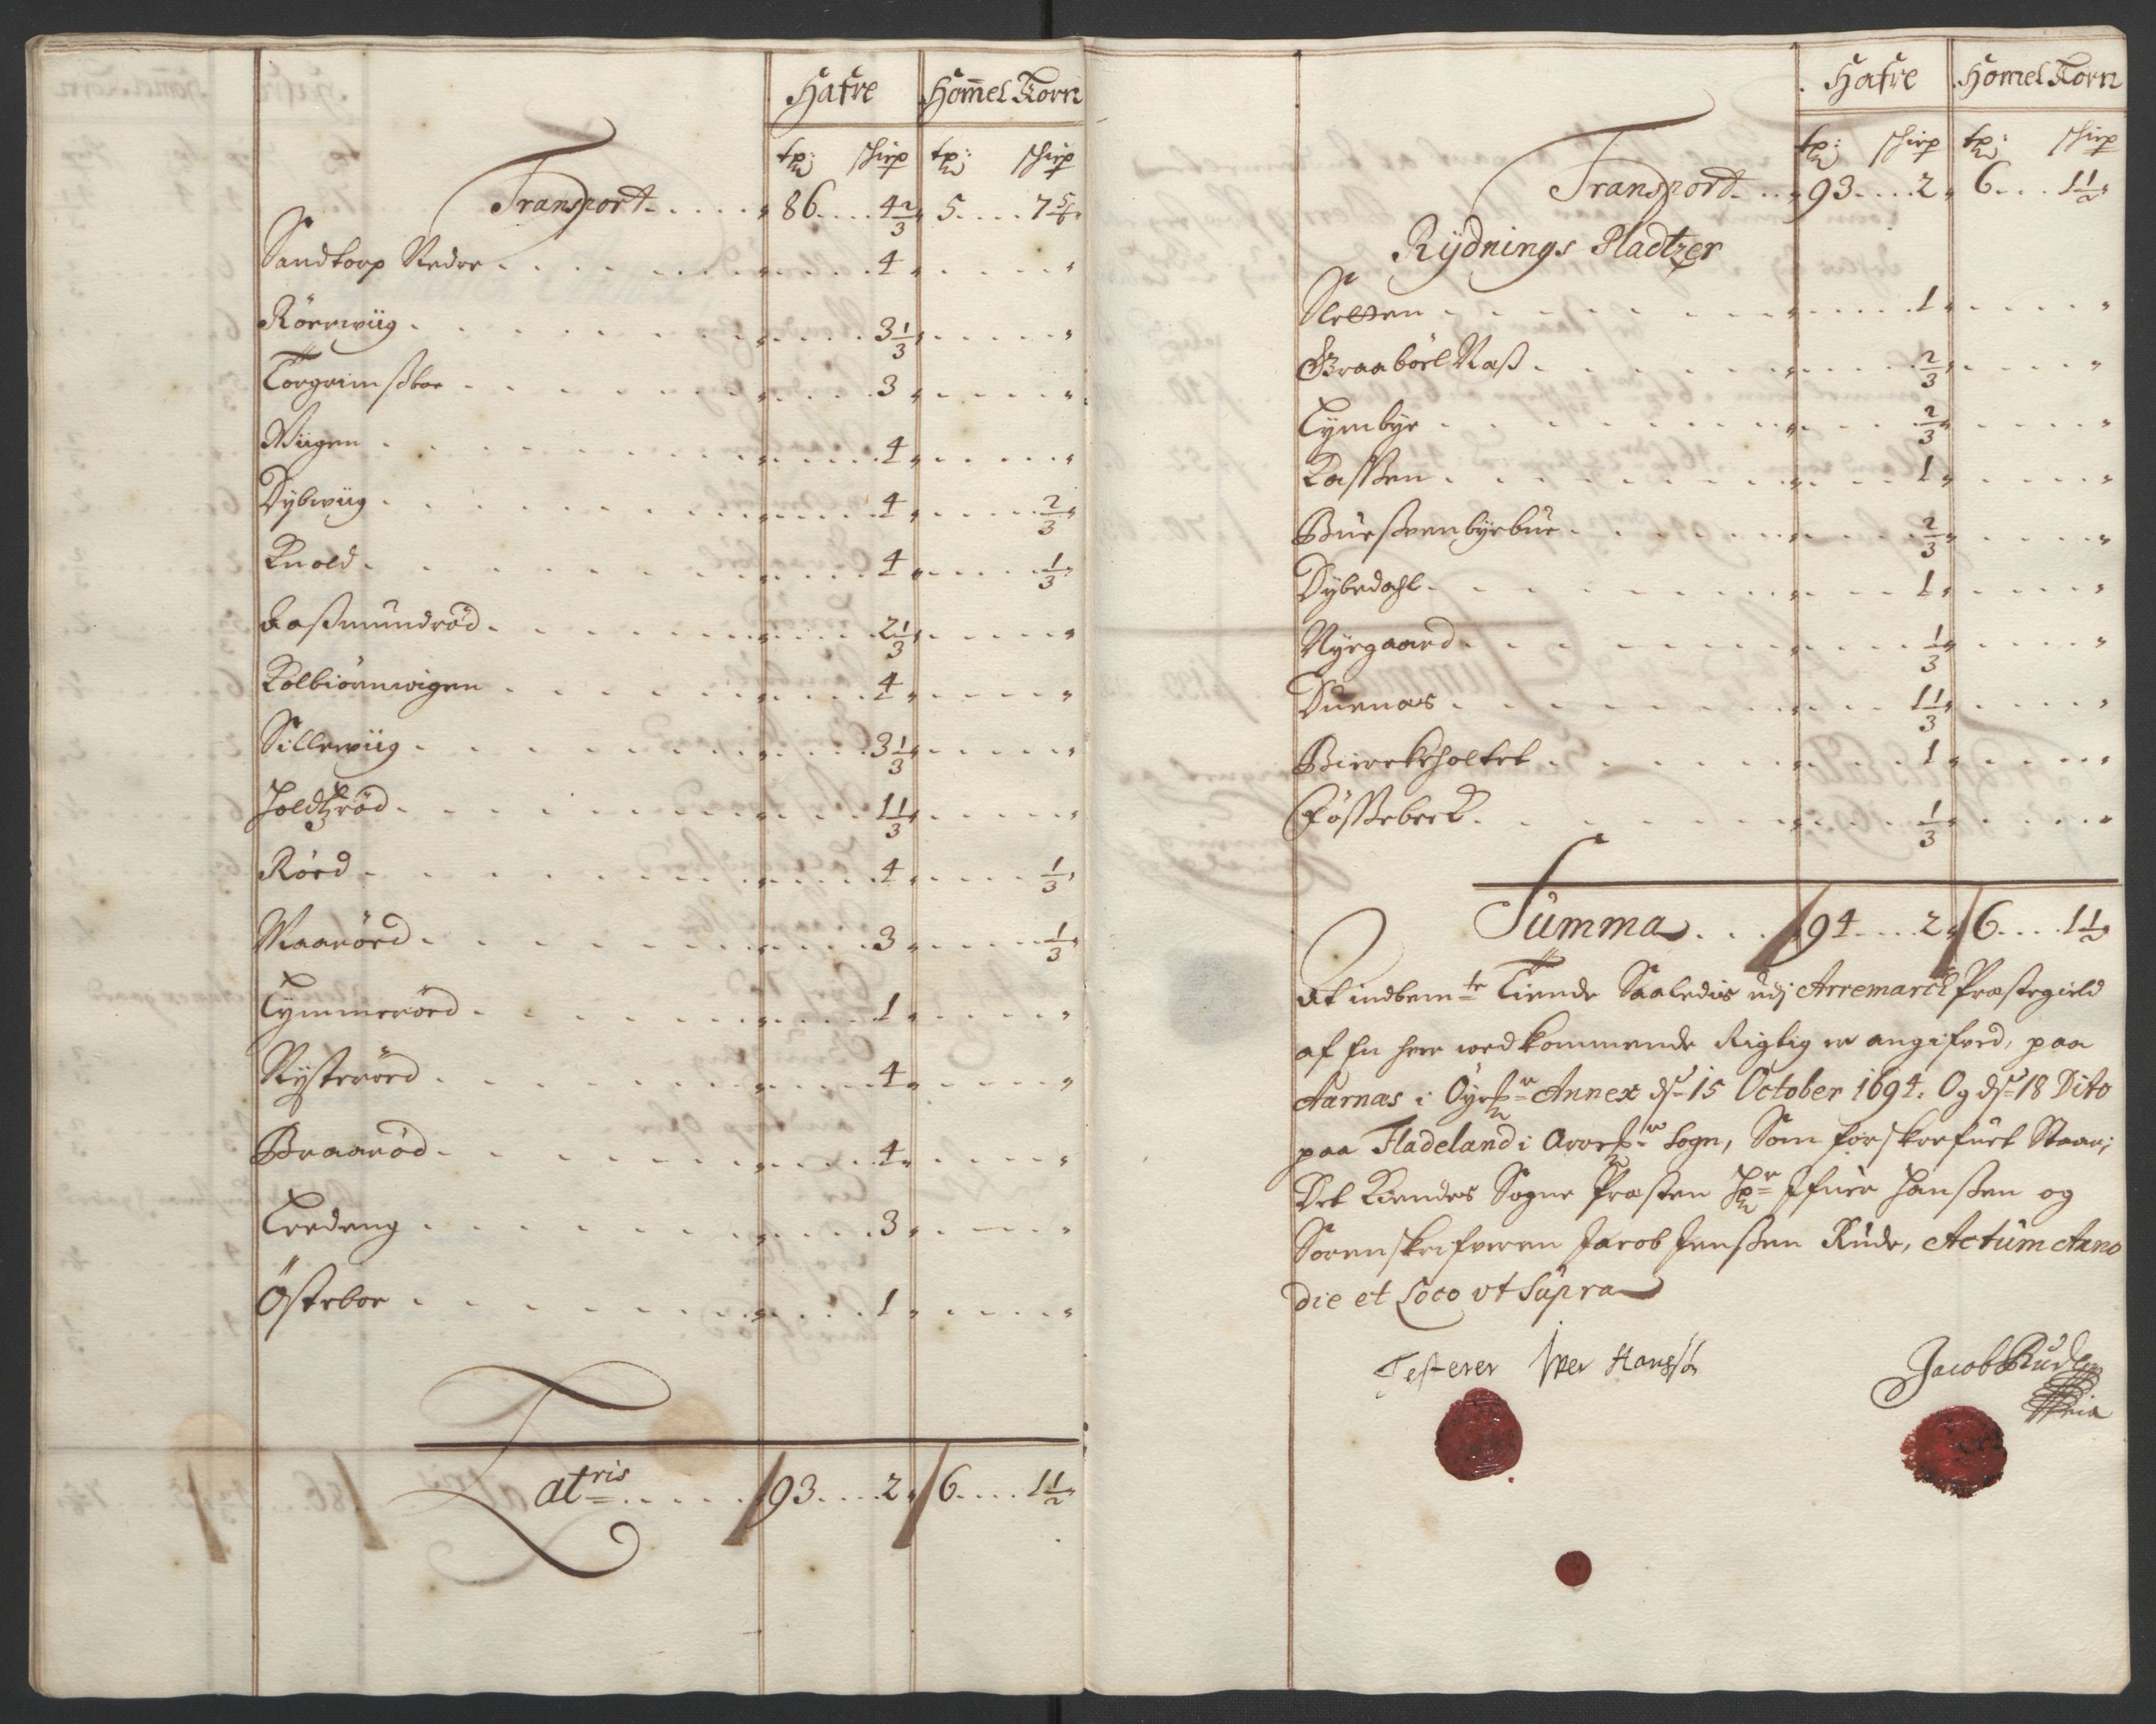 Hafre Hom̄el Korn
tp: schip tp: schip
Transport 86 4 2/3 5 7 5/6
Sandtorp Nedre 4
Rörrwiig 3 1/3
Torgrimsboe 3
Wiigen 4
Dybwiig 4 2/3
Knold 4 1/3
Aaßmundröd 2 1/3
Kolbiörnwigen 4
Sillewiig 3 1/3
Holdtzröd 1 1/3
Röed 4 1/3
Maaröed 3 1/3
Tymmeröed 1
Nysteröed 4
Braaröd 4
Tredeng 3
Östeboe 1
at ris 93 2 6 1 1/2
Hafre Homel Korn
tp: schip tp: schip
Transport 93 2 6 1 1/2
Rydnings Pladtzer
Sletten 1
Graaböel Naß 2/3
Tymbye 2/3
Kassen 1
Bueßvenbyebue 2/3
Dybedahl 1
Nyegaard 1/3
Duenæs 1 1/3
Bierkeholtet 1
Fössebeck 1/3
Summa 94 2 6 1 1/2
At indbem te Tiende Saaledis udj Arremarck Præstegield
af En hver vedkommende Rigtig er angifved, paa
Aarnæs i Öye Annex ds 15 October 1694. Og ds 18 Dito
paa Fladeland i Arre Sogn, Som forskrefuet Staar;
Det Kiendes Sogne Præsten Hr Ifuer Hanßen og
Sorenskrifveren Jacob Jenßen Rude, Actum Anno
die et Loco vt Supra
Testerer Iver Hansső
Jacob Rude